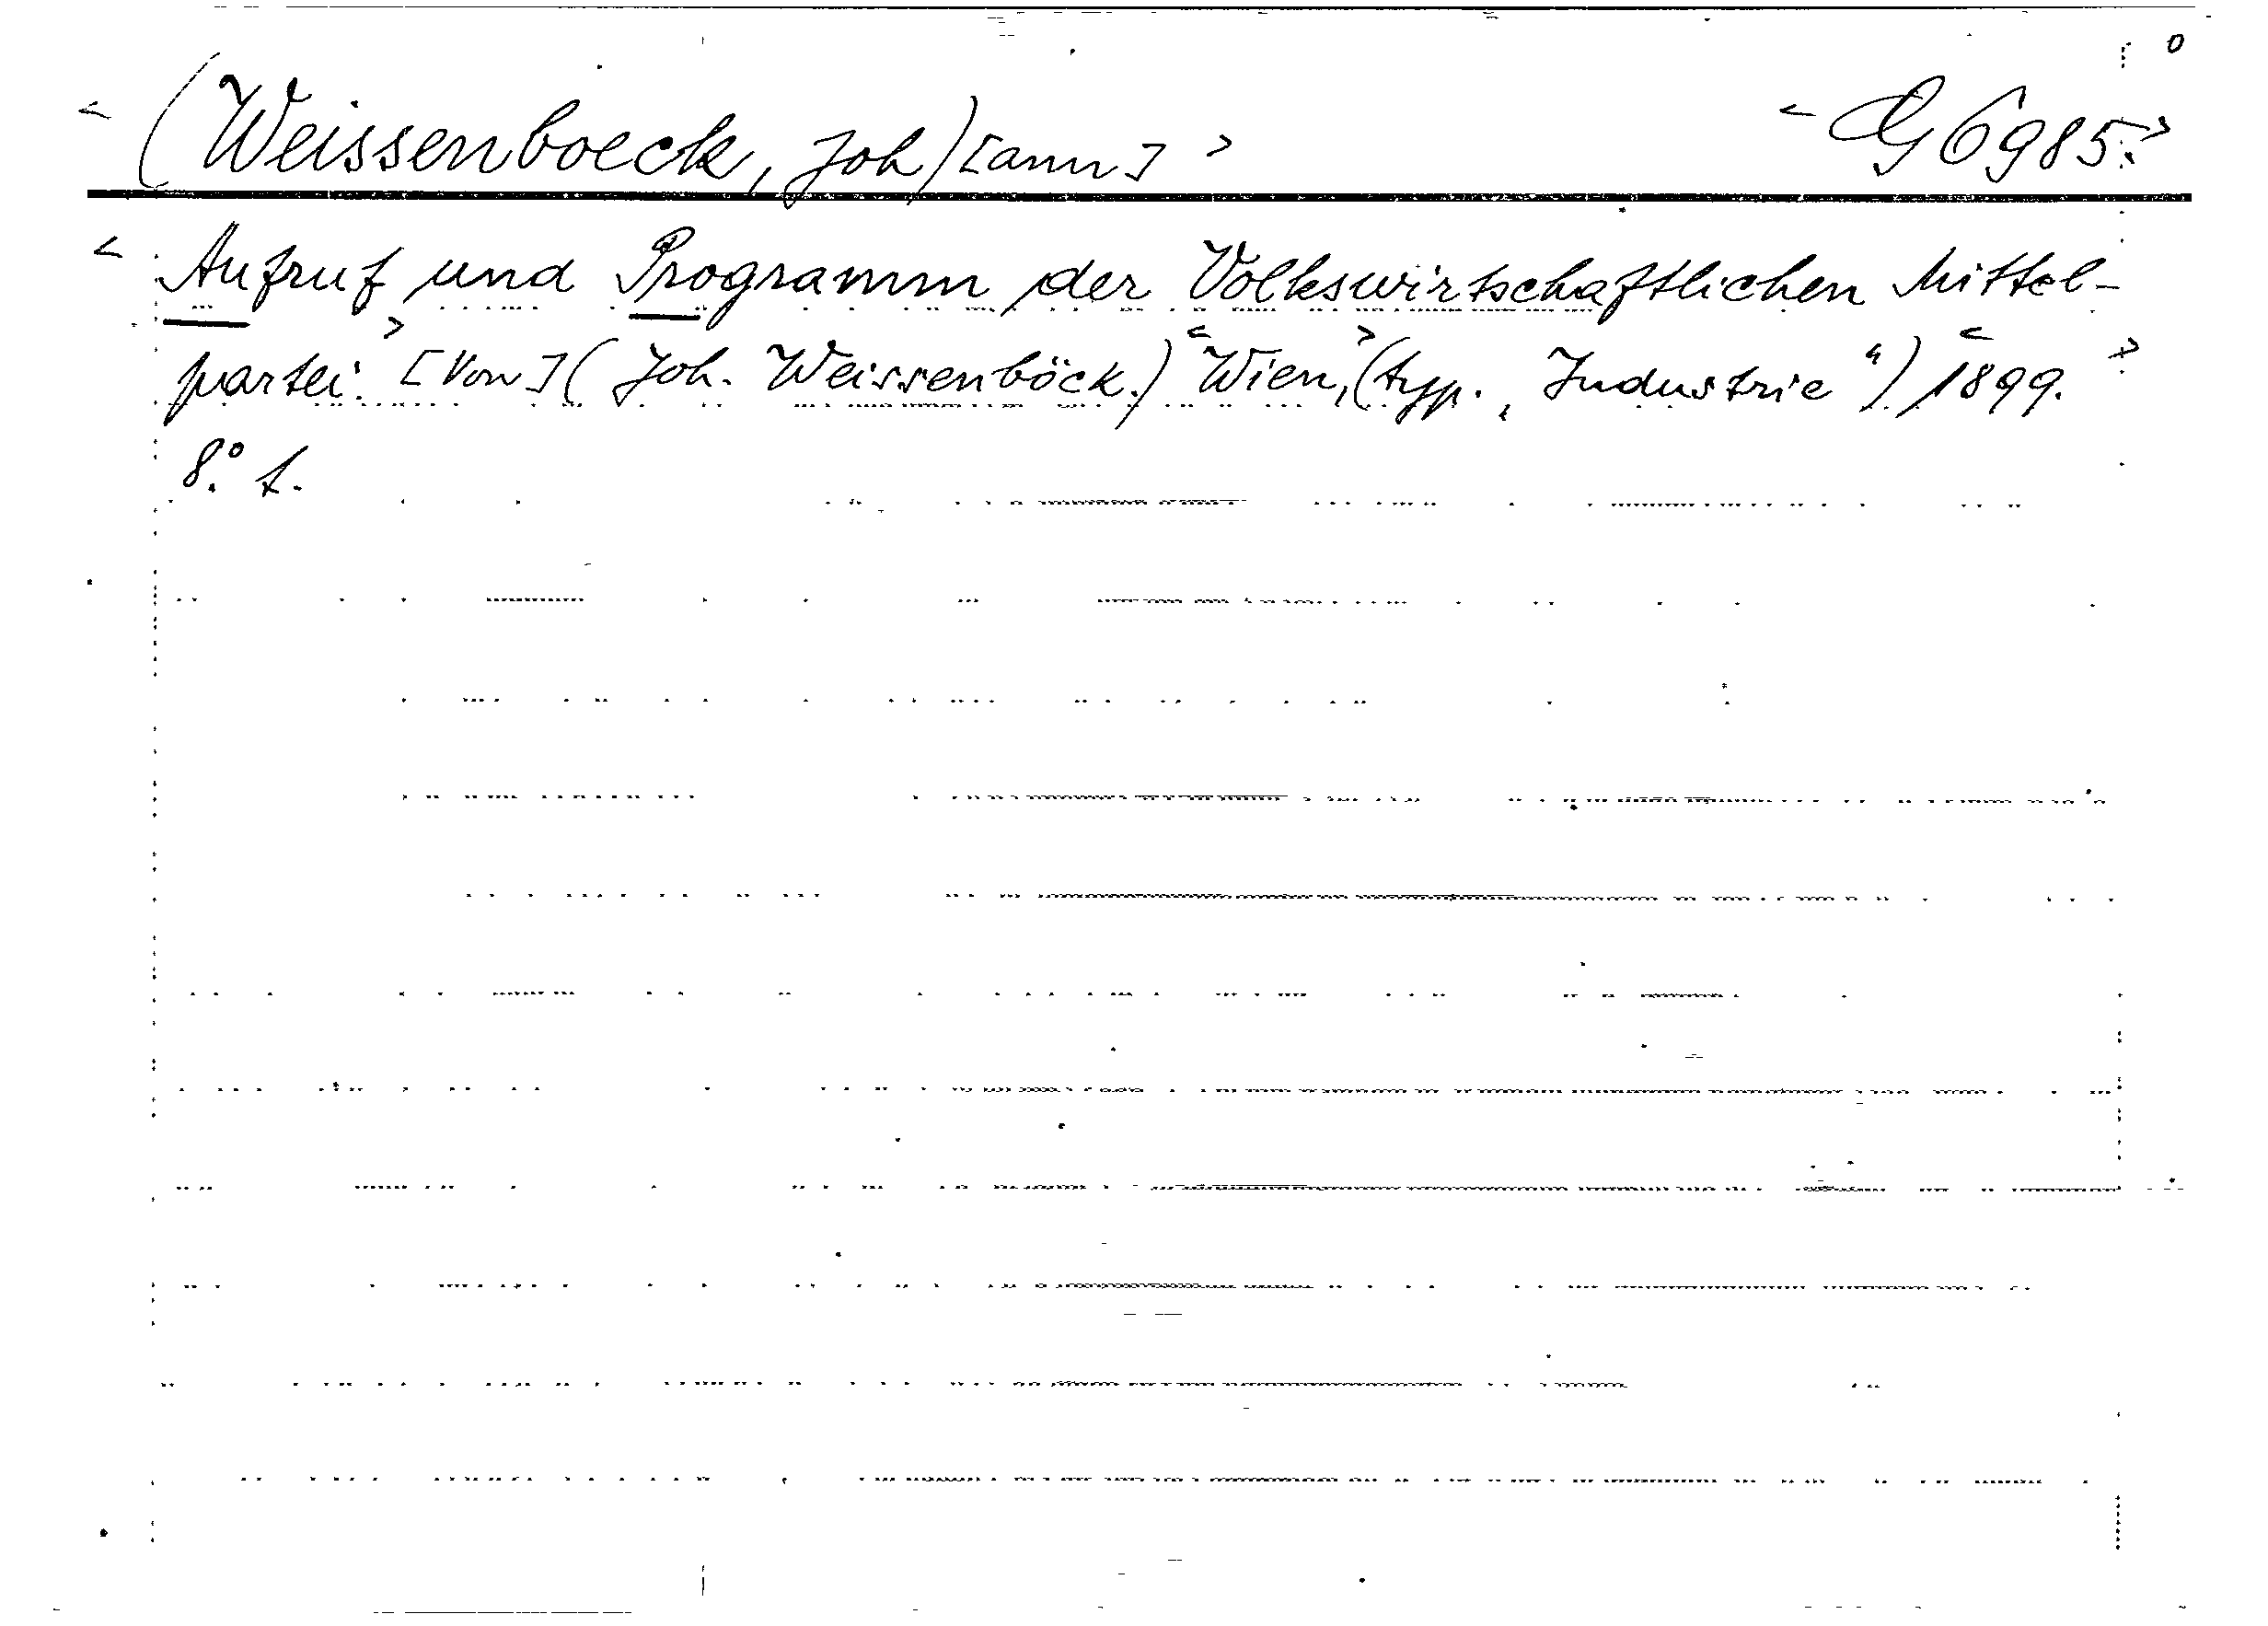 < (Weissenboeck, Joh)[ann] > < G 6985. >
< Aufruf und Programm der Volkswirtschaftlichen Mittel-
partei. > [Von] (Joh. Weissenböck.) < Wien, > (typ. „Industrie“) < 1899. >
8.° f.